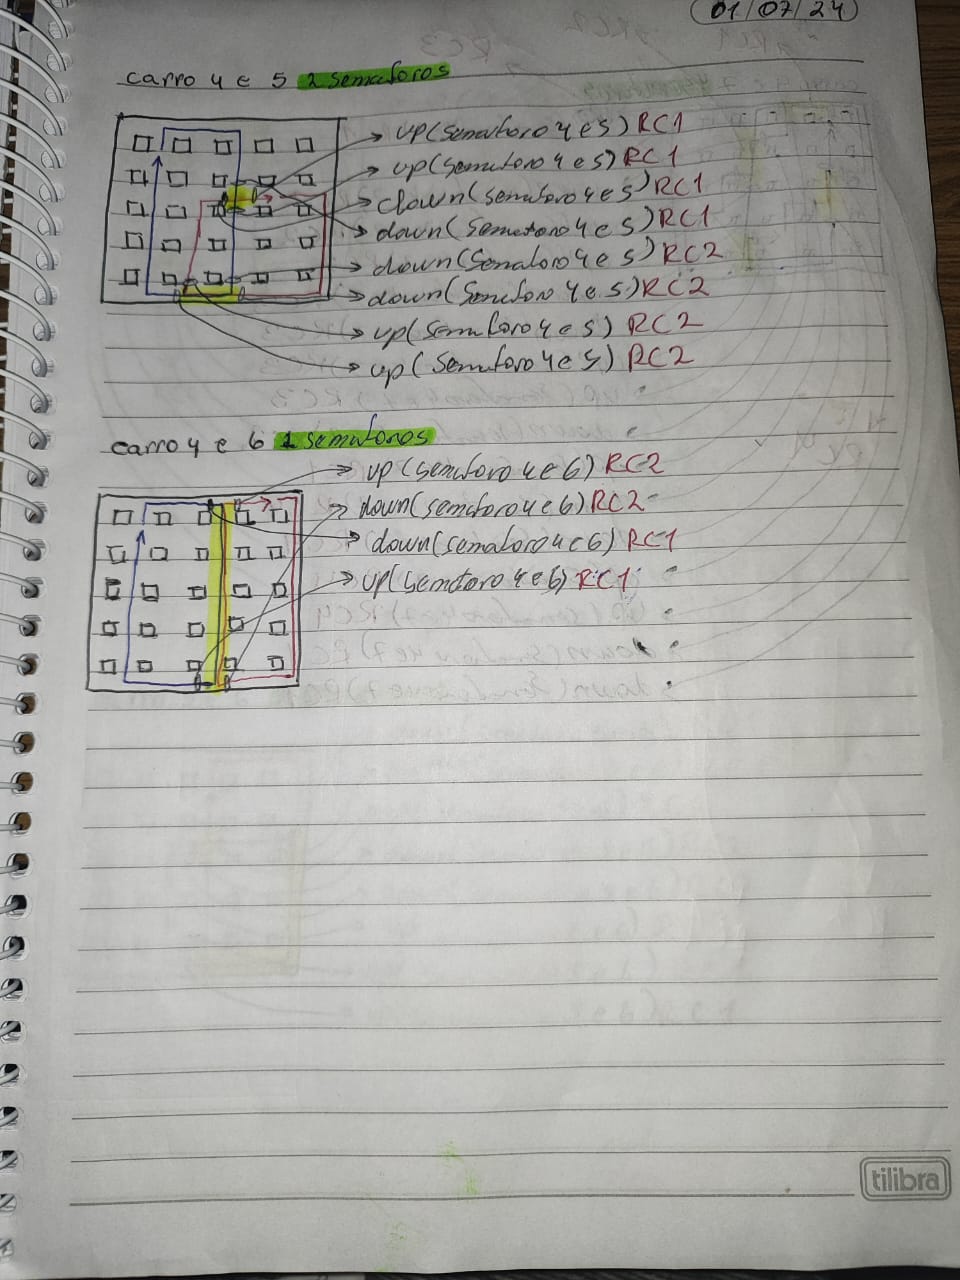 01/07/24
carro 4 e 5 2 semaforos
up(semaforo 4 e 5) RC1
up(semaforo 4 e 5) RC1
down(semaforo 4 e 5) RC1
down(semaforo 4 e 5) RC1
down(semaforo 4 e 5) RC2
down(semaforo 4 e 5) RC2
up(semaforo 4 e 5) RC2
up(semaforo 4 e 5) RC2
carro 4 e 6 1 semaforos
up(semaforo 4 e 6) RC2
down(semaforo 4 e 6) RC2
down(semaforo 4 e 6) RC1
up(semaforo 4 e 6) RC1
tilibra